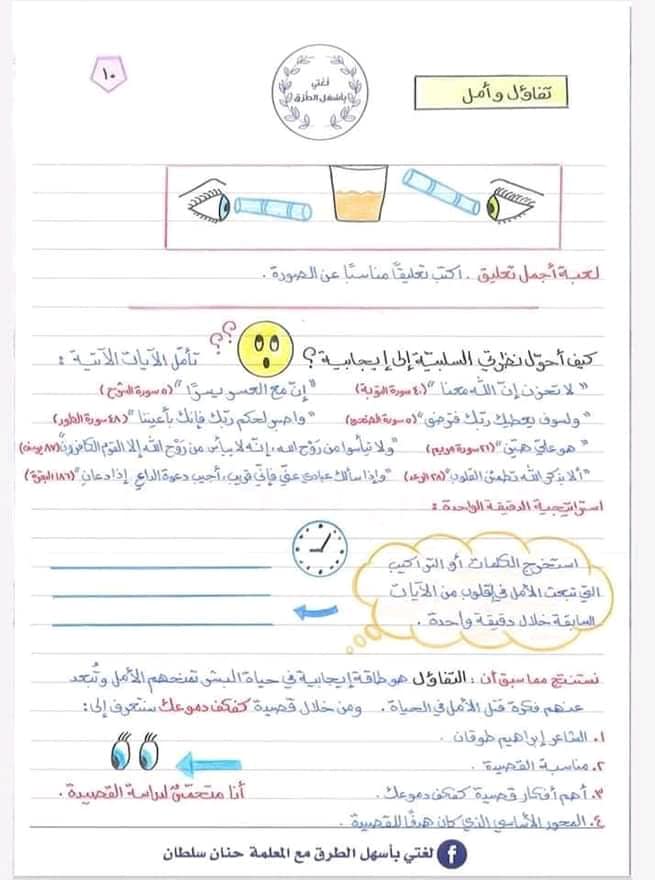 ١٠
لغتي
بأسهل الطرق
تفاؤل وأمل
لعبة أجمل تعليق . اكتب تعليقًا مناسبًا عن الصورة .
كيف أحوّل نظرتي السلبيّة إلى إيجابية ؟ ؟؟ تأمّل الآيات الآتية :
" لا تحزن إنّ الله معنا " (٤٠ سورة التوبة) " إنّ مع العسر يسرًا " (٥ سورة الشرح)
" ولسوف يعطيك ربّك فترضى " (٥ سورة الضحى) " واصبر لحكم ربّك فإنك بأعيننا " (٤٨ سورة الطور)
" هو عليّ هيّن " (٢١ سورة مريم) " ولا تيأسوا من رَوْح الله ، إنّه لا ييأس من رَوْح الله إلا القوم الكافرون " (٨٧ يوسف)
" ألا بذكر الله تطمئن القلوب " (٢٨ الرعد) " وإذا سألك عبادي عنّي فإنّي قريب ، أجيب دعوة الداعِ إذا دعانِ " (١٨٦ البقرة)
استراتيجية الدقيقة الواحدة :
استخرج الكلمات أو التراكيب
التي تبعث الأمل في القلوب من الآيات
السابقة خلال دقيقة واحدة .
نستنتج مما سبق أن : التفاؤل هو طاقة إيجابية في حياة البشر تمنحهم الأمل وتُبعد
عنهم فكرة قتل الأمل في الحياة . ومن خلال قصيدة كفكف دموعك سنتعرف إلى :
١. الشاعر إبراهيم طوقان .
٢. مناسبة القصيدة .
٣. أهم أفكار قصيدة كفكف دموعك .
أنا متحمّسٌ لدراسة القصيدة .
٤. المحور الأساسي الذي كان هدفًا للقصيدة .
لغتي بأسهل الطرق مع المعلمة حنان سلطان